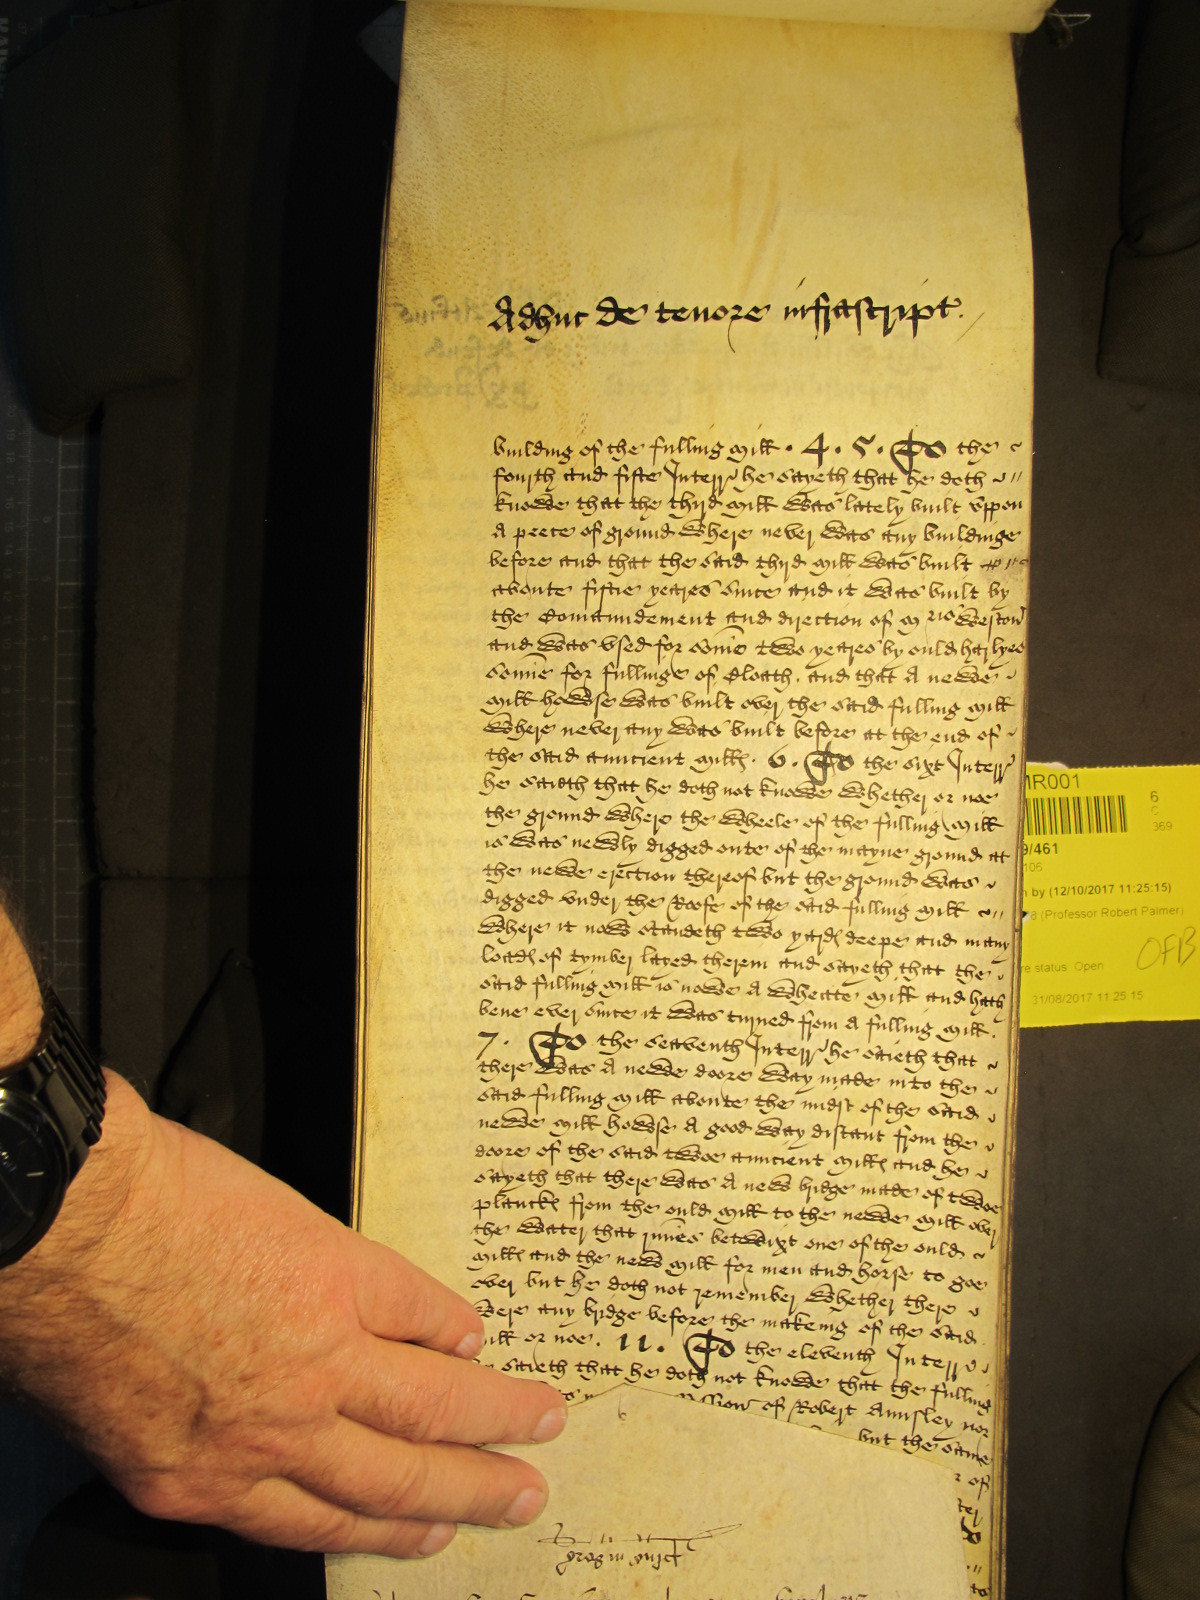 Adhuc de tenore infrascript.
building of the fulling Mill . 4 . 5 . To the
fourth and fifte Interr he sayeth that he doth
knowe that the third mill was lately built vppon
A peece of ground where never was any buildinge
before and that the said third mill was built
aboute fiftie yeares since and it was built by
the Comaundement and direction of Weston
and was vsed for some two yeares by ould
somme for fullinge of Cloath. and that A newe
mill howse was built over the said fulling mill
where never any was built before at the end of
the said auncient mills. 6. To the sixt Interr
he saieth that he doth not knowe whether or noe
the ground where the wheele of the fulling Mill
is was newly digged oute of the mayne ground at
the newe erection thereof but the ground was
digged vnder the Roofe of the said fulling mill
where it now standeth two yards deepe and many
loads of tymber layed therein and sayeth that the
said fulling mill is nowe A wheate mill and hath
bene ever since it was turned from a fulling mill.
7. To the seaventh Interr he saieth that
there was A newe doore way made into the
said fulling mill aboute the midst of the said
newe mill howse A good way distant from the
doore of the said twoe auncient mills and he
sayeth that there was A new bridge made of twoe
plancks from the ould mill to the newe mill over
the water that runnes betwixt one of the ould
mills and the new mill for men and horse to goe
over but he doth not remember whether there
were any bridge before the makeing of the said
mill or noe. 11. To the eleventh Interr
saieth that he doth not knowe that the fulling
of Robert Annsley nor
but the same
of
MR001
6
C
369
9/461
105
n by (12/10/2017 11:25:15)
8 (Professor Robert Palmer)
OFB
re status Open
31/08/2017 11:25:15